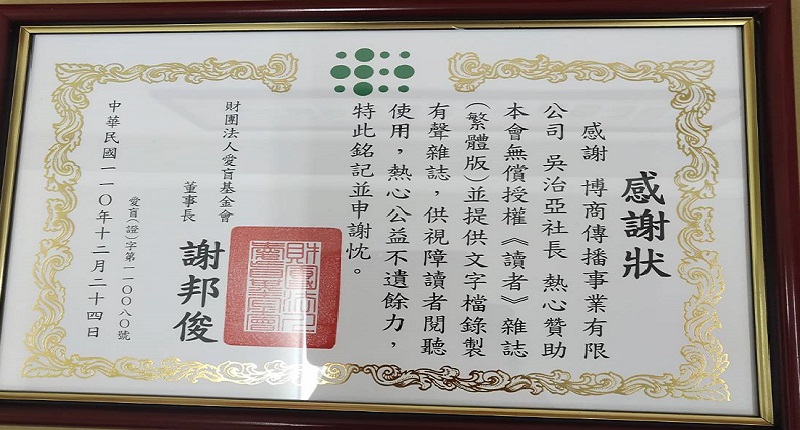 感謝狀
感謝 博商傳播事業有限
公司 吳治亞社長 熱心贊助
本會無償授權《讀者》雜誌
(繁體版)並提供文字檔錄製
有聲雜誌，供視障讀者閱聽
使用，熱心公益不遺餘力，
特此銘記並申謝忱。
財團法人愛盲基金會
董事長 謝邦俊
愛盲(證)字第一一〇〇八〇號
中華民國一一〇年十二月二十四日